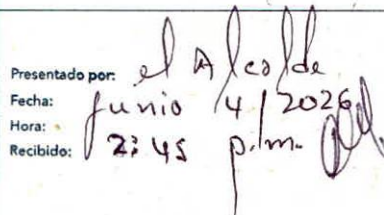 Presentado por: el Alcalde
Fecha: Junio /4/2026
Hora: 2:45 p.m.
Recibido: